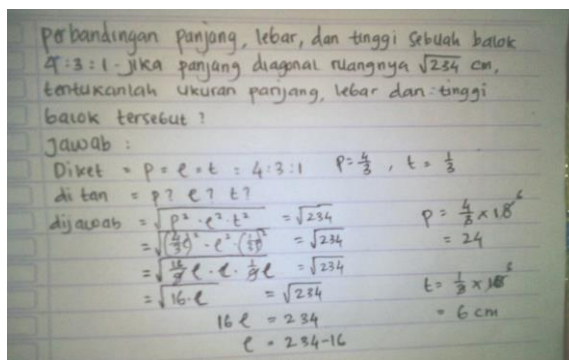 perbandingan panjang, lebar, dan tinggi sebuah balok
4 : 3 : 1 - jika panjang diagonal ruangnya √234 cm,
tentukanlah ukuran panjang, lebar dan tinggi
balok tersebut ?
Jawab :
Diket = p = l = t : 4 : 3 : 1 p = 4/3 , t = 1/3
di tan = p? l? t?
dijawab = √p² - l² - t² = √234
= √(4/3 l)² - l² - (1/3 l)² = √234
= √16/9 l · l · 1/9 l = √234
= √16 · l = √234
16 l = 234
l = 234 - 16
p = 4/3 × 18 6
= 24
t = 1/3 × 18 6
= 6 cm